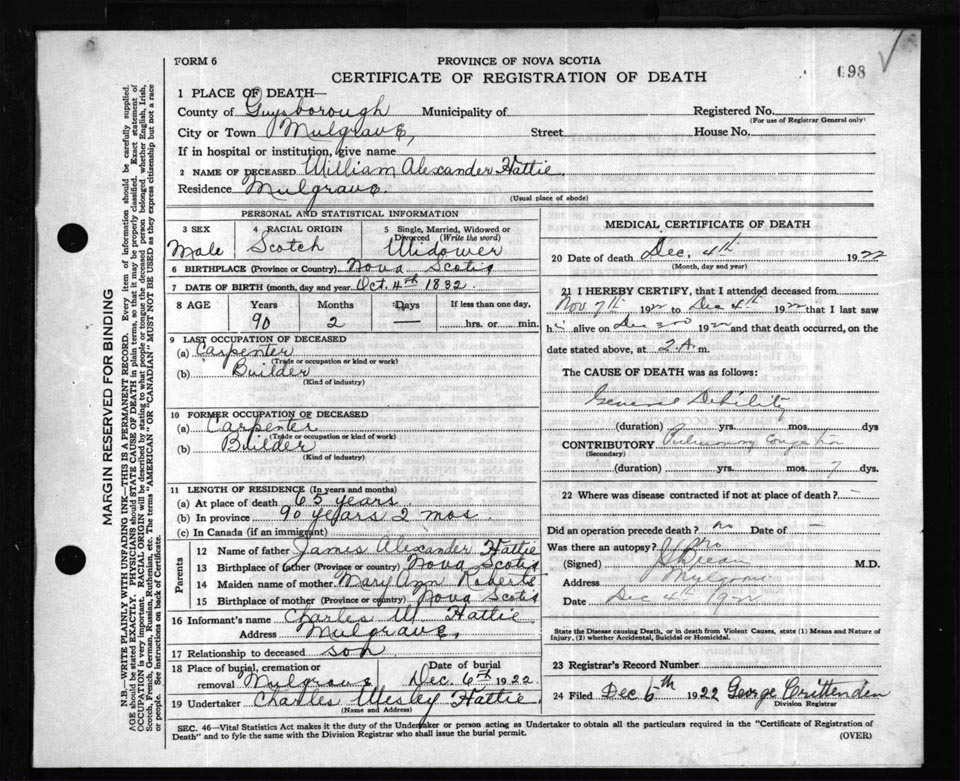 FORM 6
PROVINCE OF NOVA SCOTIA
CERTIFICATE OF REGISTRATION OF DEATH
698
1 PLACE OF DEATH—
County of Guysborough Municipality of Registered No.
(For use of Registrar General only)
City or Town Mulgrave, Street House No.
If in hospital or institution, give name
2 NAME OF DECEASED William Alexander Hattie.
Residence Mulgrave.
(Usual place of abode)
PERSONAL AND STATISTICAL INFORMATION
3 SEX 4 RACIAL ORIGIN 5 Single, Married, Widowed or Divorced (Write the word)
Male Scotch Widower
6 BIRTHPLACE (Province or Country) Nova Scotia
7 DATE OF BIRTH (month, day and year) Oct. 4th 1832.
8 AGE Years Months Days If less than one day,
90 2 — hrs. or min.
9 LAST OCCUPATION OF DECEASED
(a) Carpenter
(Trade or occupation or kind or work)
(b) Builder
(Kind of industry)
10 FORMER OCCUPATION OF DECEASED
(a) Carpenter
(Trade or occupation or kind of work)
(b) Builder
(Kind of industry)
11 LENGTH OF RESIDENCE (In years and months)
(a) At place of death 65 years.
(b) In province 90 years 2 mos.
(c) In Canada (if an immigrant)
Parents
12 Name of father James Alexander Hattie
13 Birthplace of father (Province or country) Nova Scotia
14 Maiden name of mother Mary Ann Roberts
15 Birthplace of mother (Province or country) Nova Scotia
16 Informant's name Charles W. Hattie
Address Mulgrave,
17 Relationship to deceased son
18 Place of burial, cremation or removal Mulgrave Date of burial Dec. 6th 1922.
19 Undertaker Charles Wesley Hattie,
(Name and Address)
MEDICAL CERTIFICATE OF DEATH
20 Date of death Dec. 4th 1922
(Month, day and year)
21 I HEREBY CERTIFY, that I attended deceased from
Nov 7th 1922 to Dec 4th 1922 that I last saw
h alive on Dec 1922 and that death occurred, on the
date stated above, at 2.A.m.
The CAUSE OF DEATH was as follows:
General Debility
(duration) yrs. mos. dys
CONTRIBUTORY Pulmonary Congestion
(Secondary)
(duration) yrs. mos. 7 dys.
22 Where was disease contracted if not at place of death? —
Did an operation precede death? no Date of —
Was there an autopsy? No
(Signed) M.D.
Address Mulgrave
Date Dec 4th 1922
State the Disease causing Death, or in death from Violent Causes, state (1) Means and Nature of
Injury, (2) whether Accidental, Suicidal or Homicidal.
23 Registrar's Record Number
24 Filed Dec 6th 1922 George Crittenden
Division Registrar
SEC. 46—Vital Statistics Act makes it the duty of the Undertaker or person acting as Undertaker to obtain all the particulars required in the "Certificate of Registration of
Death" and to fyle the same with the Division Registrar who shall issue the burial permit.
(OVER)
MARGIN RESERVED FOR BINDING
N.B.—WRITE PLAINLY WITH UNFADING INK—THIS IS A PERMANENT RECORD. Every item of information should be carefully supplied.
AGE should be stated EXACTLY. PHYSICIANS should STATE CAUSE OF DEATH in plain terms, so that it may be properly classified. Exact statement of
OCCUPATION is very important. RACIAL ORIGIN will be described by stating to what people or tongue the deceased person belonged whether English, Irish,
Scotch, French, German, Russian, Ruthenian, etc. The terms "AMERICAN" OR "CANADIAN" MUST NOT BE USED as they express citizenship but not a race
or people. See instructions on back of Certificate.